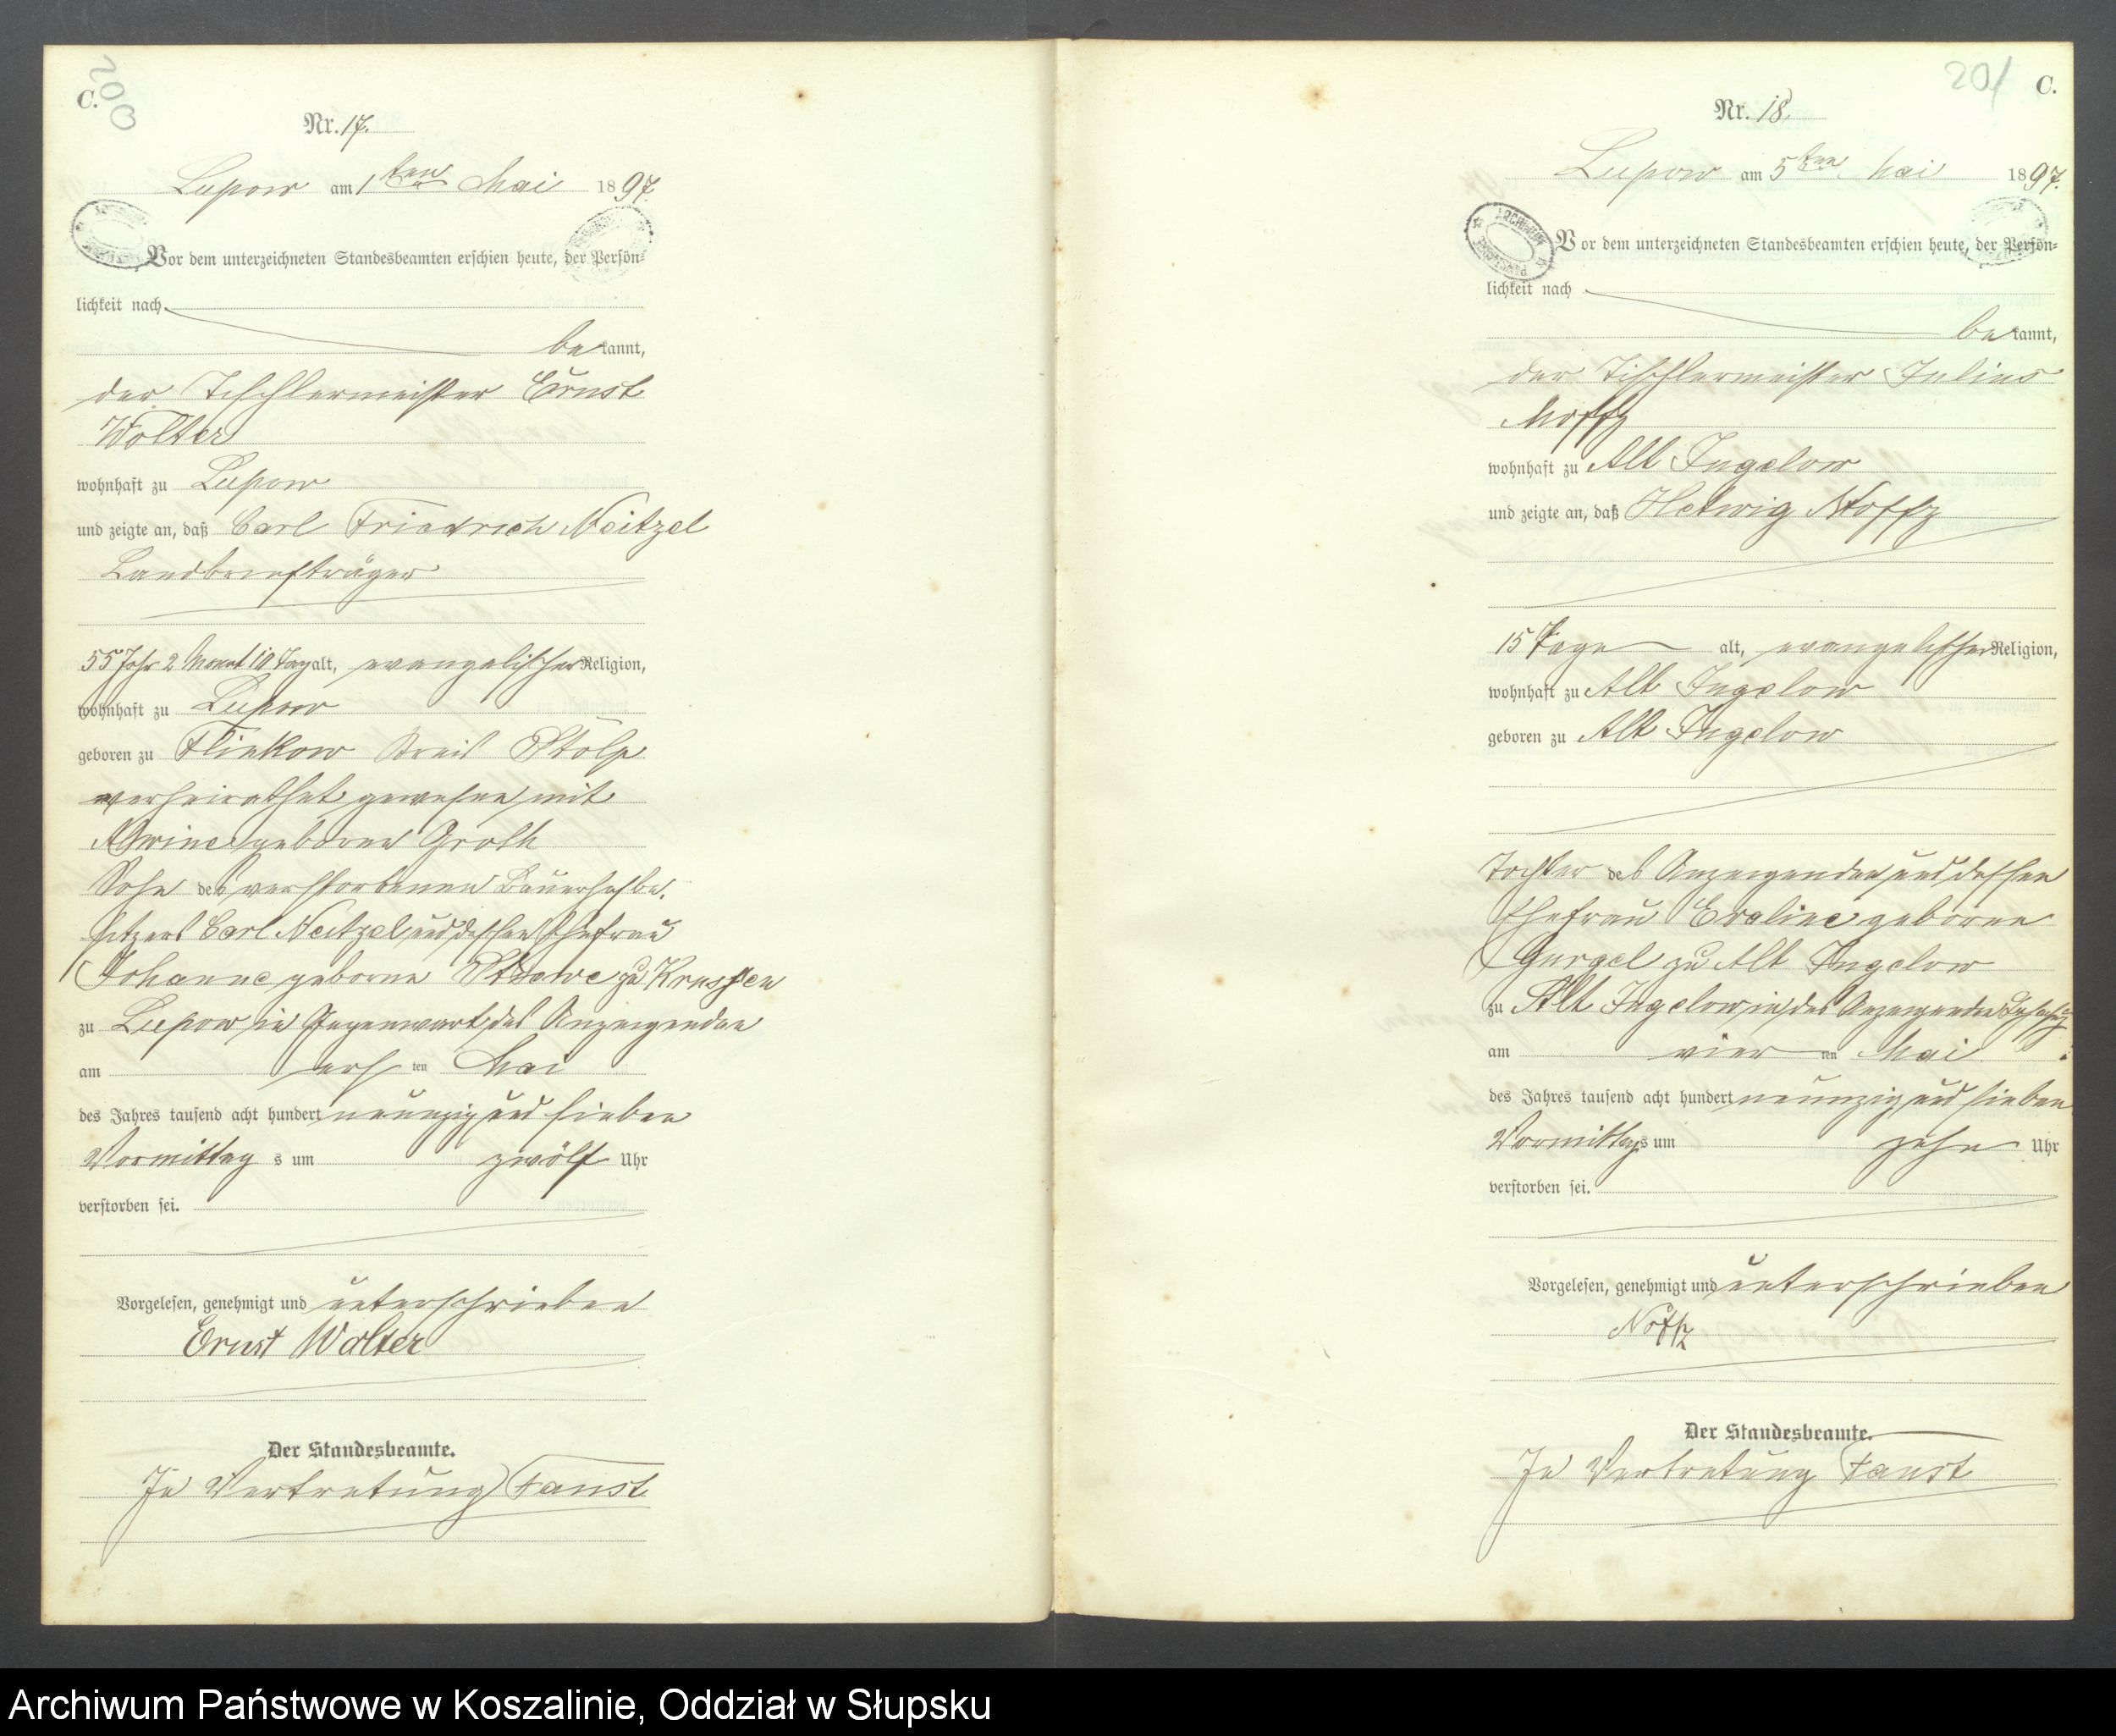 200
C.
Nr. 17.
Lupow am 1ten Mai 1897.
Vor dem unterzeichneten Standesbeamten erschien heute, der Persön-
lichkeit nach
bekannt,
der Tischlermeister Ernst
Wolter
wohnhaft zu Lupow
und zeigte an, daß Carl Friedrich Neitzel
Landbriefträger
55 Jahr 2 Monat 10 Tag alt, evangelischer Religion,
wohnhaft zu Lupow
geboren zu Flinkow Kreis Stolp
verheirathet gewesen mit
Alwine geborene Groth
Sohn des verstorbenen Bauerhofbe-
sitzers Carl Neitzel und dessen Ehefrau
Johanne geborne zu Krussen
zu Lupow in Gegenwart des Anzeigenden
am ersten Mai
des Jahres tausend acht hundert neunzig und sieben
Vormittags um zwölf Uhr
verstorben sei.
Vorgelesen, genehmigt und unterschrieben
Ernst Wolter
Der Standesbeamte.
In Vertretung Faust
201
C.
Nr. 18.
Lupow am 5ten Mai 1897.
Vor dem unterzeichneten Standesbeamten erschien heute, der Persön-
lichkeit nach
bekannt,
der Tischlermeister Julius
Noffz
wohnhaft zu Alt Jugelow
und zeigte an, daß Hetwig Noffz
15 Tage alt, evangelischer Religion,
wohnhaft zu Alt Jugelow
geboren zu Alt Jugelow
Tochter des Anzeigenden und dessen
Ehefrau Eveline geborne
Gurgel zu Alt Jugelow
zu Alt Jugelow in des Anzeigenden Behausung
am vierten Mai
des Jahres tausend acht hundert neunzig und sieben
Vormittags um zehn Uhr
verstorben sei.
Vorgelesen, genehmigt und unterschrieben
Noffz
Der Standesbeamte.
In Vertretung Faust
Archiwum Państwowe w Koszalinie, Oddział w Słupsku